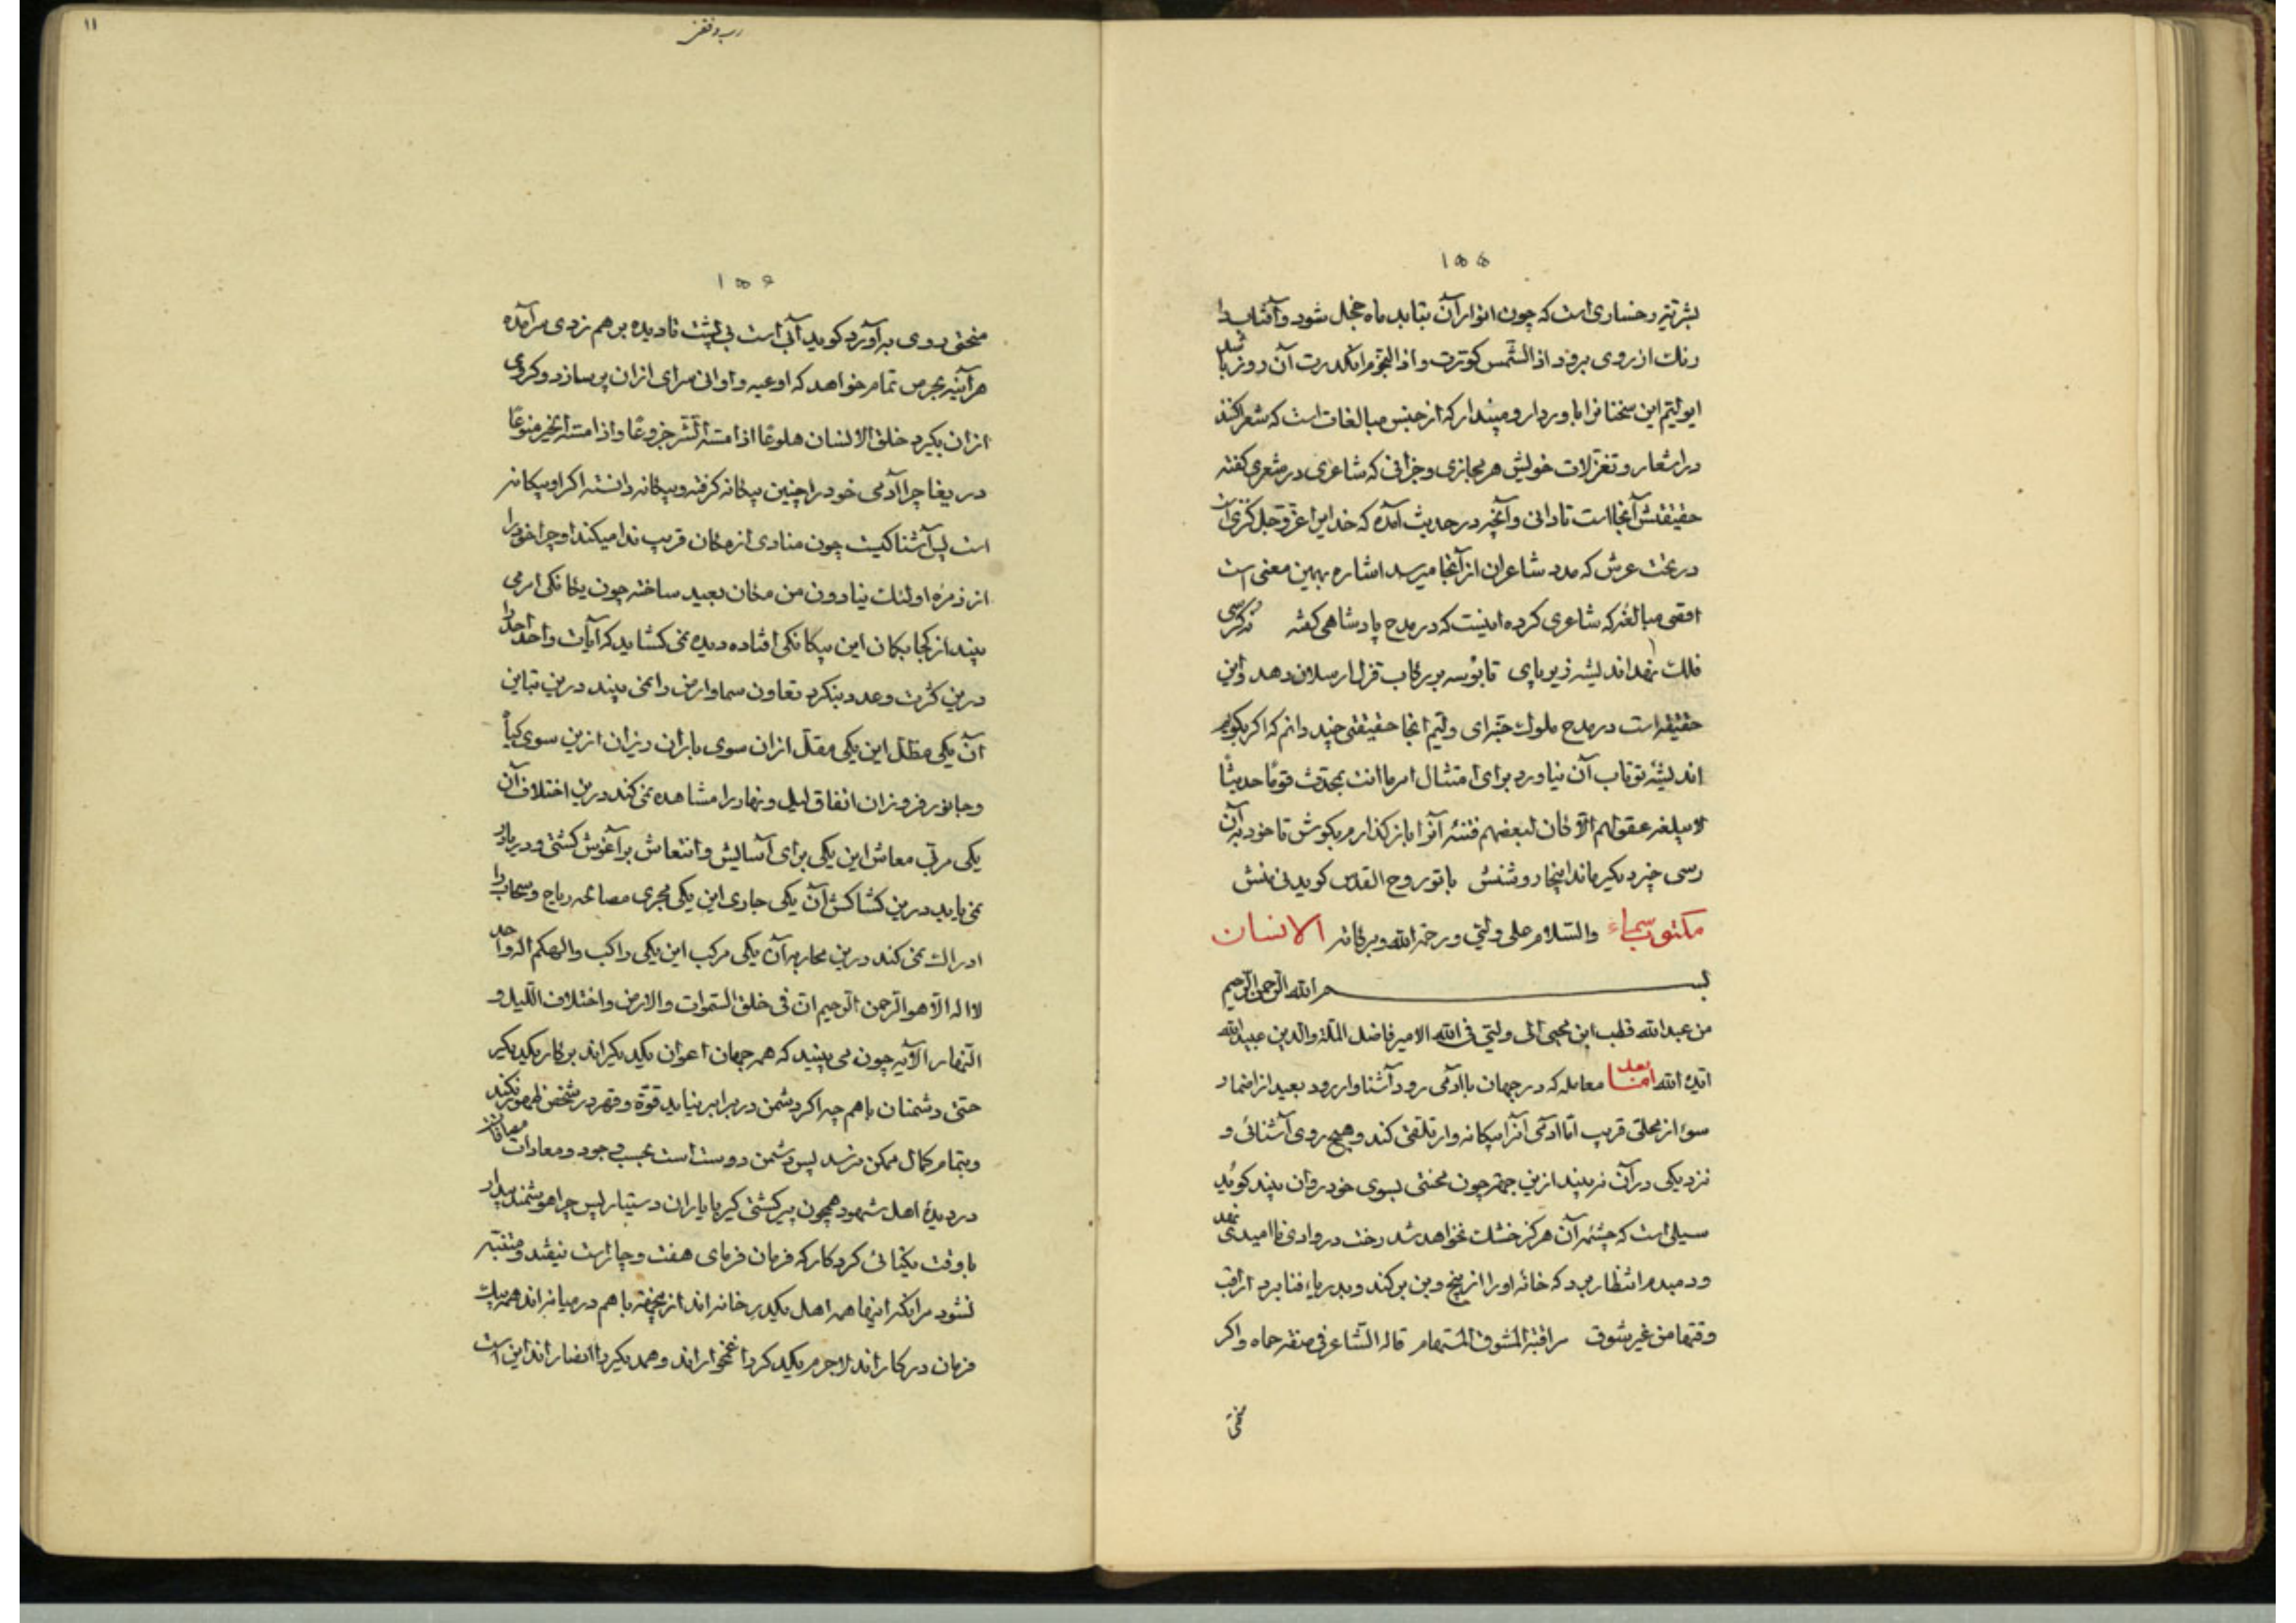 ۱۵۵
بشر تیز رخساری است که چون انوار آن بتابد ماه خجل شود و آفتاب را
رنك از روی برود اذا الشّمس کوّرت و اذا النجوم انکدرت آن روز باشد
ای ولیّم این سخنانرا باور دار و مپندار که از جنس مبالغات است که شعرا کنند
در اشعار و تغزلات خویش هر مجازی و جزافی که شاعری در شعری کفته
حقیقتش آنجا است تا دانی و آنچه در حدیث آمده که خدایرا عزّ و جل کنزی است
در تحت عرش که مدد شاعران از آنجا میرسد اشاره بهمین معنی است
اقصی مبالغه که شاعری کرده اینست که در مدح پادشاهی کفته نه کرسی
فلك نهد اندیشه زیر پای تا بوسه بر رکاب قزل ارسلان دهد و این
حقیقه است در مدح ملوك خبر ای ولیّم اینجا حقیقتی چند دانم که اکر بکویم
اندیشهٔ تو تاب آن نیاورد برای امتثال امر ما انت بمحدّث قومًا حدیثًا
لا یبلغه عقولهم الّا کان لبعضهم فتنه آنرا باز کذارم بکوش تا خود بآن
رسی چیز دیکر ماند اینجا روشنش با تو روح القدس کوید بی منش
مکتوب سماء والسّلام علی ولیّی ورحمة الله وبرکاته الانسان
بسم الله الرّحمن الرّحیم
من عبدالله قطب ابن محیی الی ولیّی فی الله الامیر فاضل الملّة والدین عبیدالله
ایّده الله امّا بعد معامله که در جهان با آدمی رود آشناوار رود بعید از اضمار
سوء از محلّی قریب امّا آدمی آنرا بیکانه وار تلقّی کند و هیچ روی آشنائی و
نزدیکی در آن نه بیند ازین جهة چون محنتی بسوی خود روان بیند کوید
سیلی است که چشمه آن هرکز خشك نخواهد شد رخت در وادی نا امیدی نهد
و دمبدم انتظار برد که خانهٔ اورا از بیخ و بن برکند و بدریاء فنا برد اراقب
وقتها من غیر شوق مراقبة المشوق المستهام قاله الشّاعر فی صفة حماه و اکر
منحتی
۱۱
۱۵۶
منحتی روی به آورد کوید آبی است بی پشت تا دیده بر هم زدی سرآمده
هرآینه بحرص تمام خواهد که اوعیه و اوانی سرای ازان پر سازد و کروی
ازان بکیرد خلق الانسان هلوعًا اذا مسّه الشّر جزوعًا و اذا مسّه الخیر منوعًا
دریغا چرا آدمی خودرا چنین بیکانه کرفته و بیکانه دانسته اکر او بیکانه
است پس آشنا کیست چون منادی از مکان قریب ندا میکند او چرا خودرا
از زمرهٔ اولئك ینادون من مکان بعید ساخته چون یکانکی امر می
بیند از کجا بکمان این بیکانکی افتاده دیده نمی کشاید که آیات واحد احدرا
درین کثرت و عدد بنکرد تعاون سما و ارض را نمی بیند درین تباین
آن یکی مظلّ این یکی مقلّ ازان سوی باران ریزان ازین سوی کیاه
و جانور فروزان اتفاق لیل و نهار را مشاهده نمی کند درین اختلاف آن
یکی مرتّب معاش این یکی برای آسایش و انتعاش بر آغوش کشتی و دریا در
نمی یابد درین کشاکش آن یکی جاری این یکی مجری مصالحه ریاح و سحاب را
ادراك نمی کند درین محاربه آن یکی مرکب این یکی راکب والهکم اله واحد
لا اله الّا هو الرّحمن الرّحیم انّ فی خلق السّموات والارض واختلاف اللّیل و
النّهار الآیه چون می بیند که همه جهان اعوان یکدیکراند بر کار یکدیکر
حتّی دشمنان باهم چه اکر دشمن در برابر نیاید قوّة و قهر در شخص ظهور نکند
و بتمام کمال ممکن نرسد پس دشمن دوست است بحسب وجود و معادات مصافات
در دیدهٔ اهل شهود همچون پیر کشتی کیر با یاران دستیار پس چرا هوشمند بیدار
با وقت یکتائی کردکار که فرمان فرمای هفت و چار است نیفتد و متنبّه
نشود مر آنکه اینها همه اهل یکدر خانه اند از هیچ نه باهم در میانه اند همه بیك
فرمان در کار اند لاجرم یکدیکر را غمخوار اند و همدیکر را انصار اند این است